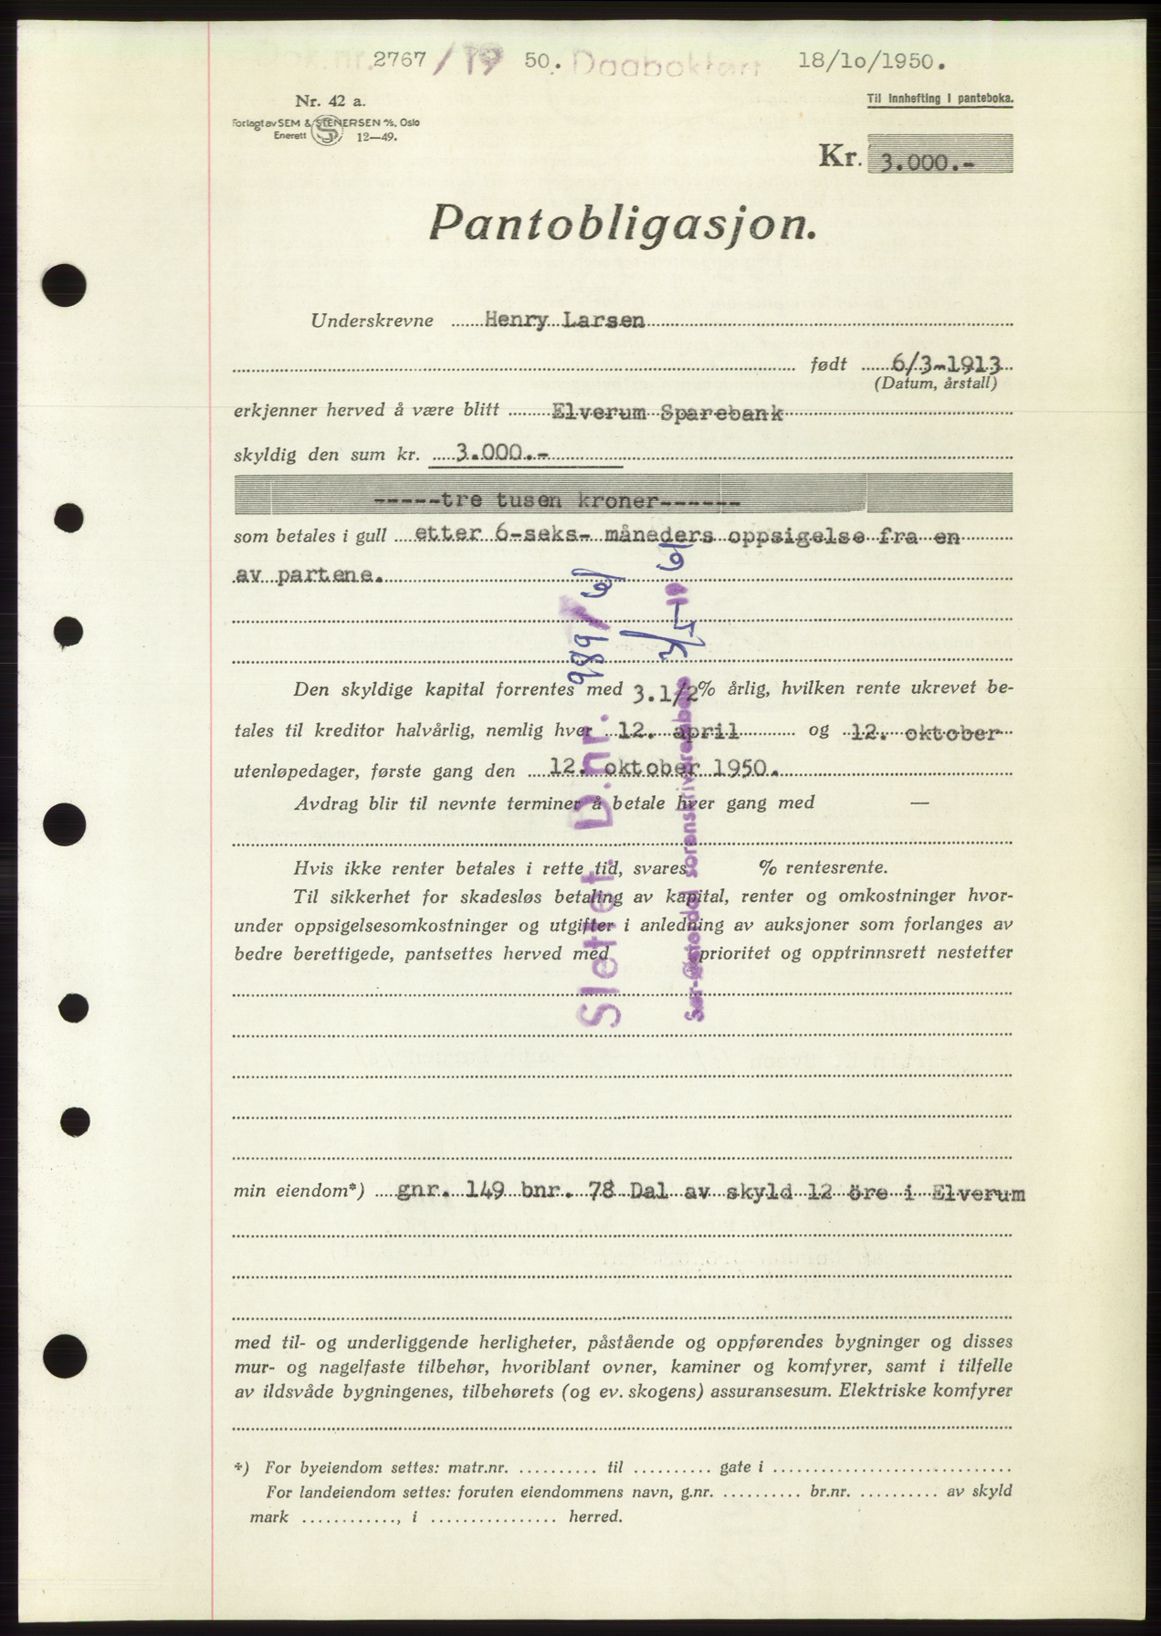 Dok.nr. 2767 / 19 50. Dagbokført 18/10/1950.
Nr. 42 a.
Til innhefting i panteboka.
Forlagt av SEM & STENERSEN A/S, Oslo
Enerett 12—49.
Kr. 3.000.-
Pantobligasjon.
Underskrevne Henry Larsen
født 6/3-1913
(Datum, årstall)
erkjenner herved å være blitt Elverum Sparebank
skyldig den sum kr. 3.000.-
-----tre tusen kroner------
som betales i gull etter 6-seks- måneders oppsigelse fra en
av partene.
Den skyldige kapital forrentes med 3.1/2% årlig, hvilken rente ukrevet be-
tales til kreditor halvårlig, nemlig hver 12. april og 12. oktober
utenløpedager, første gang den 12. oktober 1950.
Avdrag blir til nevnte terminer å betale hver gang med —
Hvis ikke renter betales i rette tid, svares % rentesrente.
Til sikkerhet for skadesløs betaling av kapital, renter og omkostninger hvor-
under oppsigelsesomkostninger og utgifter i anledning av auksjoner som forlanges av
bedre berettigede, pantsettes herved med prioritet og opptrinnsrett nestetter
min eiendom*) gnr. 149 bnr. 78 Dal av skyld 12 öre i Elverum
med til- og underliggende herligheter, påstående og oppførendes bygninger og disses
mur- og nagelfaste tilbehør, hvoriblant ovner, kaminer og komfyrer, samt i tilfelle
av ildsvåde bygningenes, tilbehørets (og ev. skogens) assuransesum. Elektriske komfyrer
*) For byeiendom settes: matr.nr. .......... til .......... gate i ..............................
For landeiendom settes: foruten eiendommens navn, g.nr. .......... br.nr. .......... av skyld
mark ............, i ................ herred.
Slettet. D.nr. 989 / 61
Sør-Østerdal sorenskriverembede